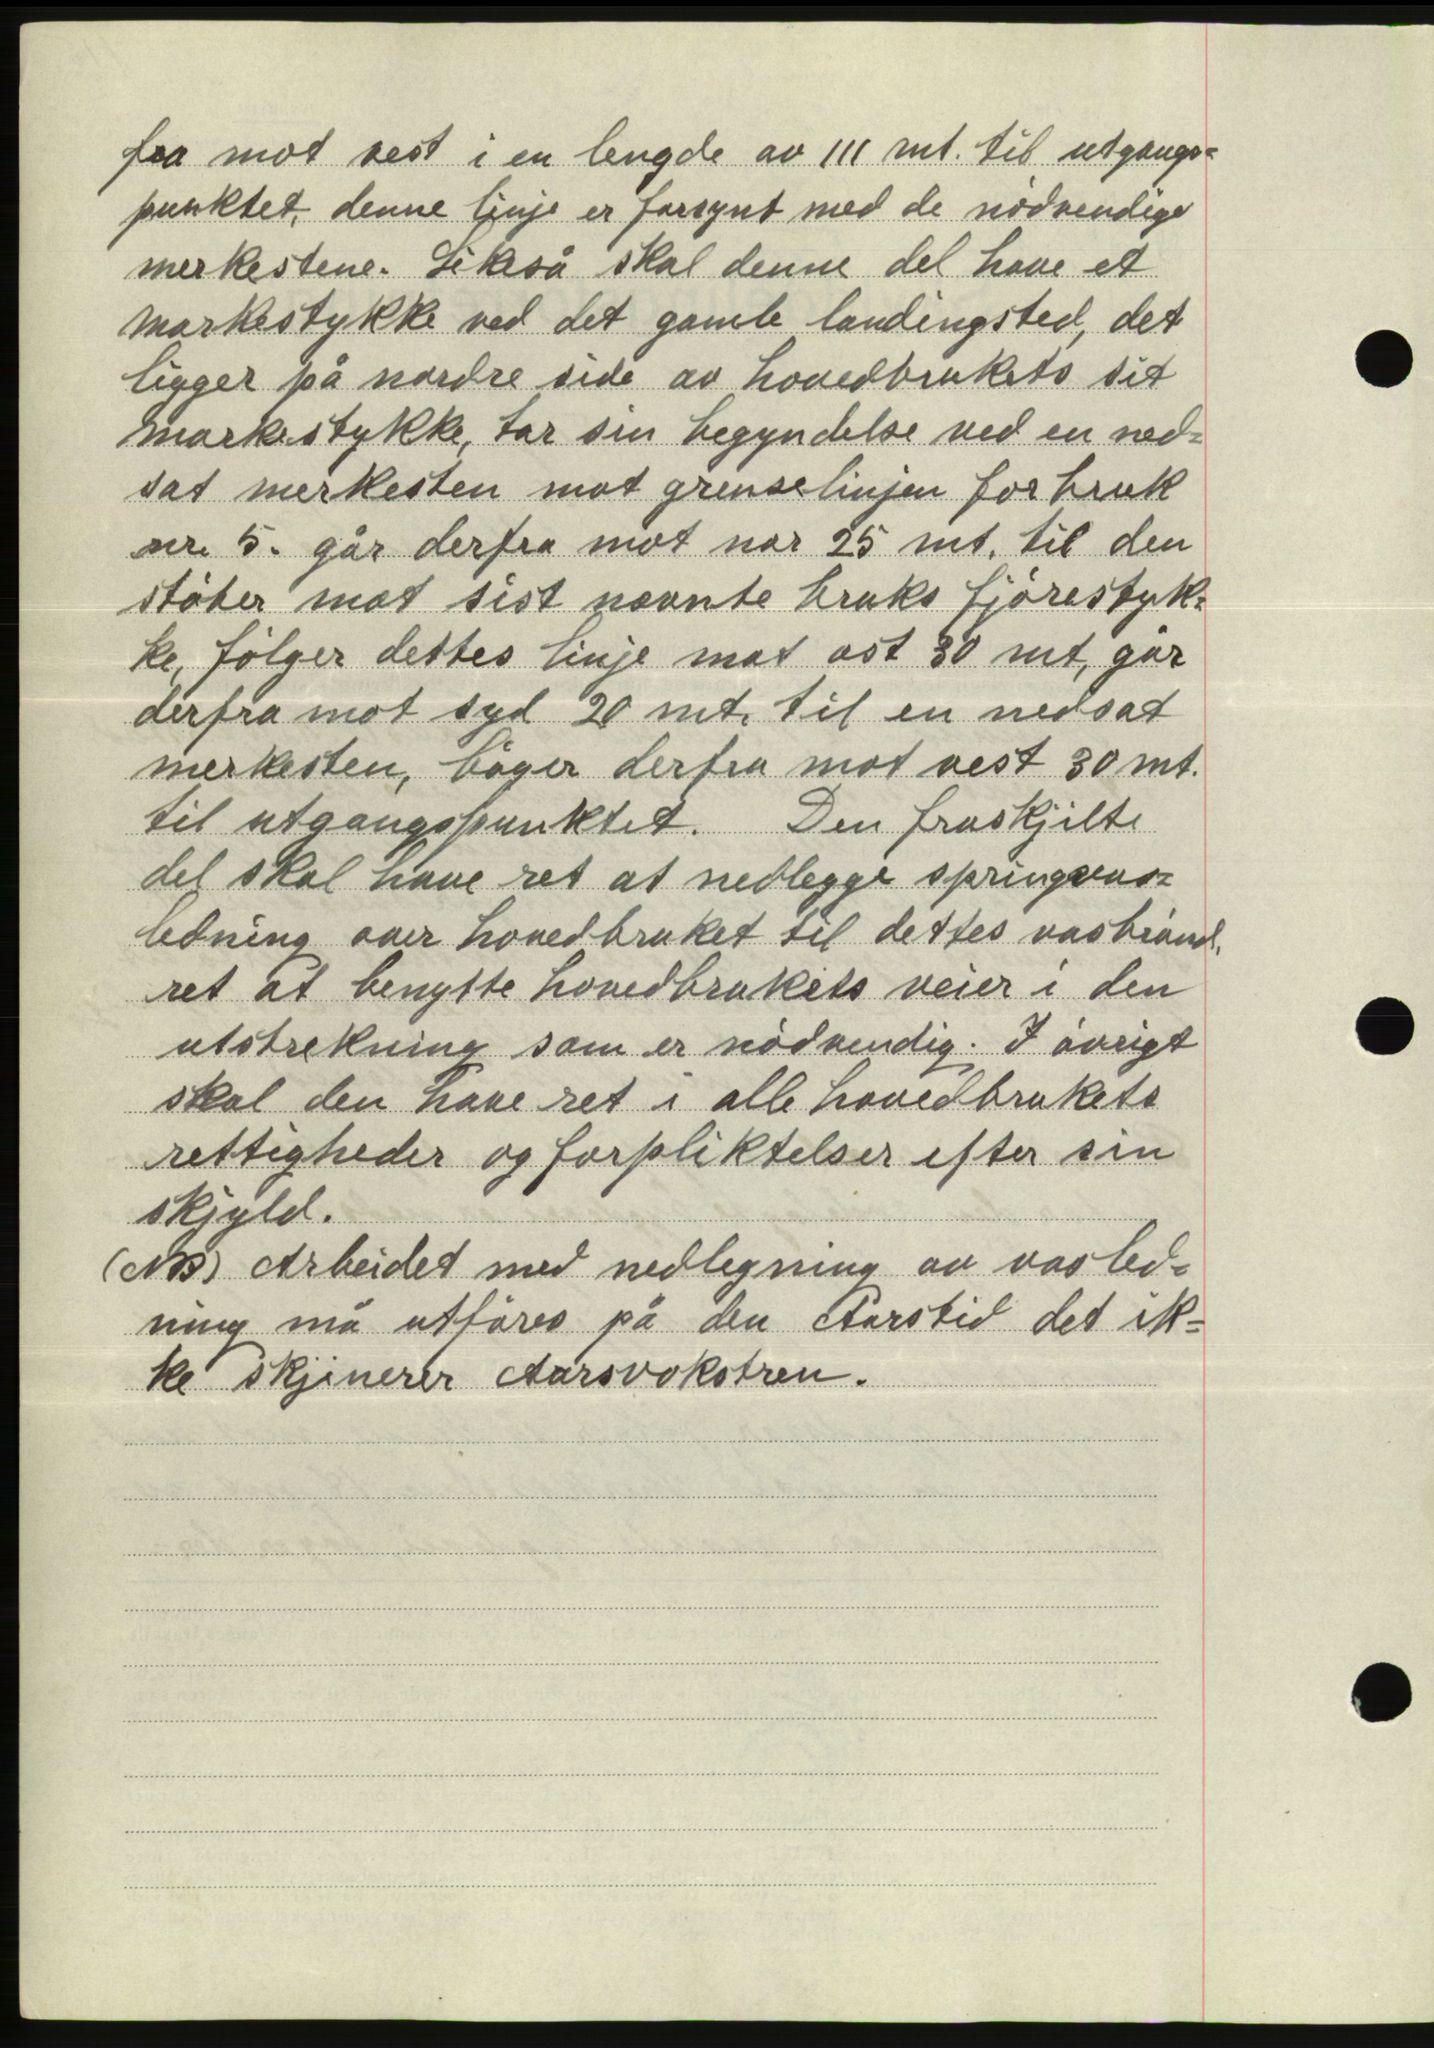 fra mot vest i en lengde av 111 mt. til utgangs=
punktet, denne linje er forsynt med de nödvendige
merkestene. Likeså skal denne del have et
markestykke ved det gamle landingsted, det
ligger på nordre side av hovedbrukets sit
markestykke, tar sin begyndelse ved en ned=
sat merkesten mot grenselinjen for bruk
nr. 5. går derfra mot nor 25 mt. til den
stöter mot sist nevnte bruks fjörestyk=
ke, fölger dettes linje mot ost 30 mt, går
derfra mot syd 20 mt. til en nedsat
merkesten, böger derfra mot vest 30 mt.
til utgangspunktet. Den fraskjilte
del skal have ret at nedlegge springvas=
ledning over hovedbruket til dettes vasbrönd,
ret at benytte hovedbrukets veier i den
utstrekning som er nödvendig. I övrigt
skal den have ret i alle hovedbrukets
rettigheder og forpliktelser efter sin
skjyld.
(NB) Arbeidet med nedlegning av vasled=
ning må utföres på den Aarstid det ik=
ke skjinerer Aarsvokstren.